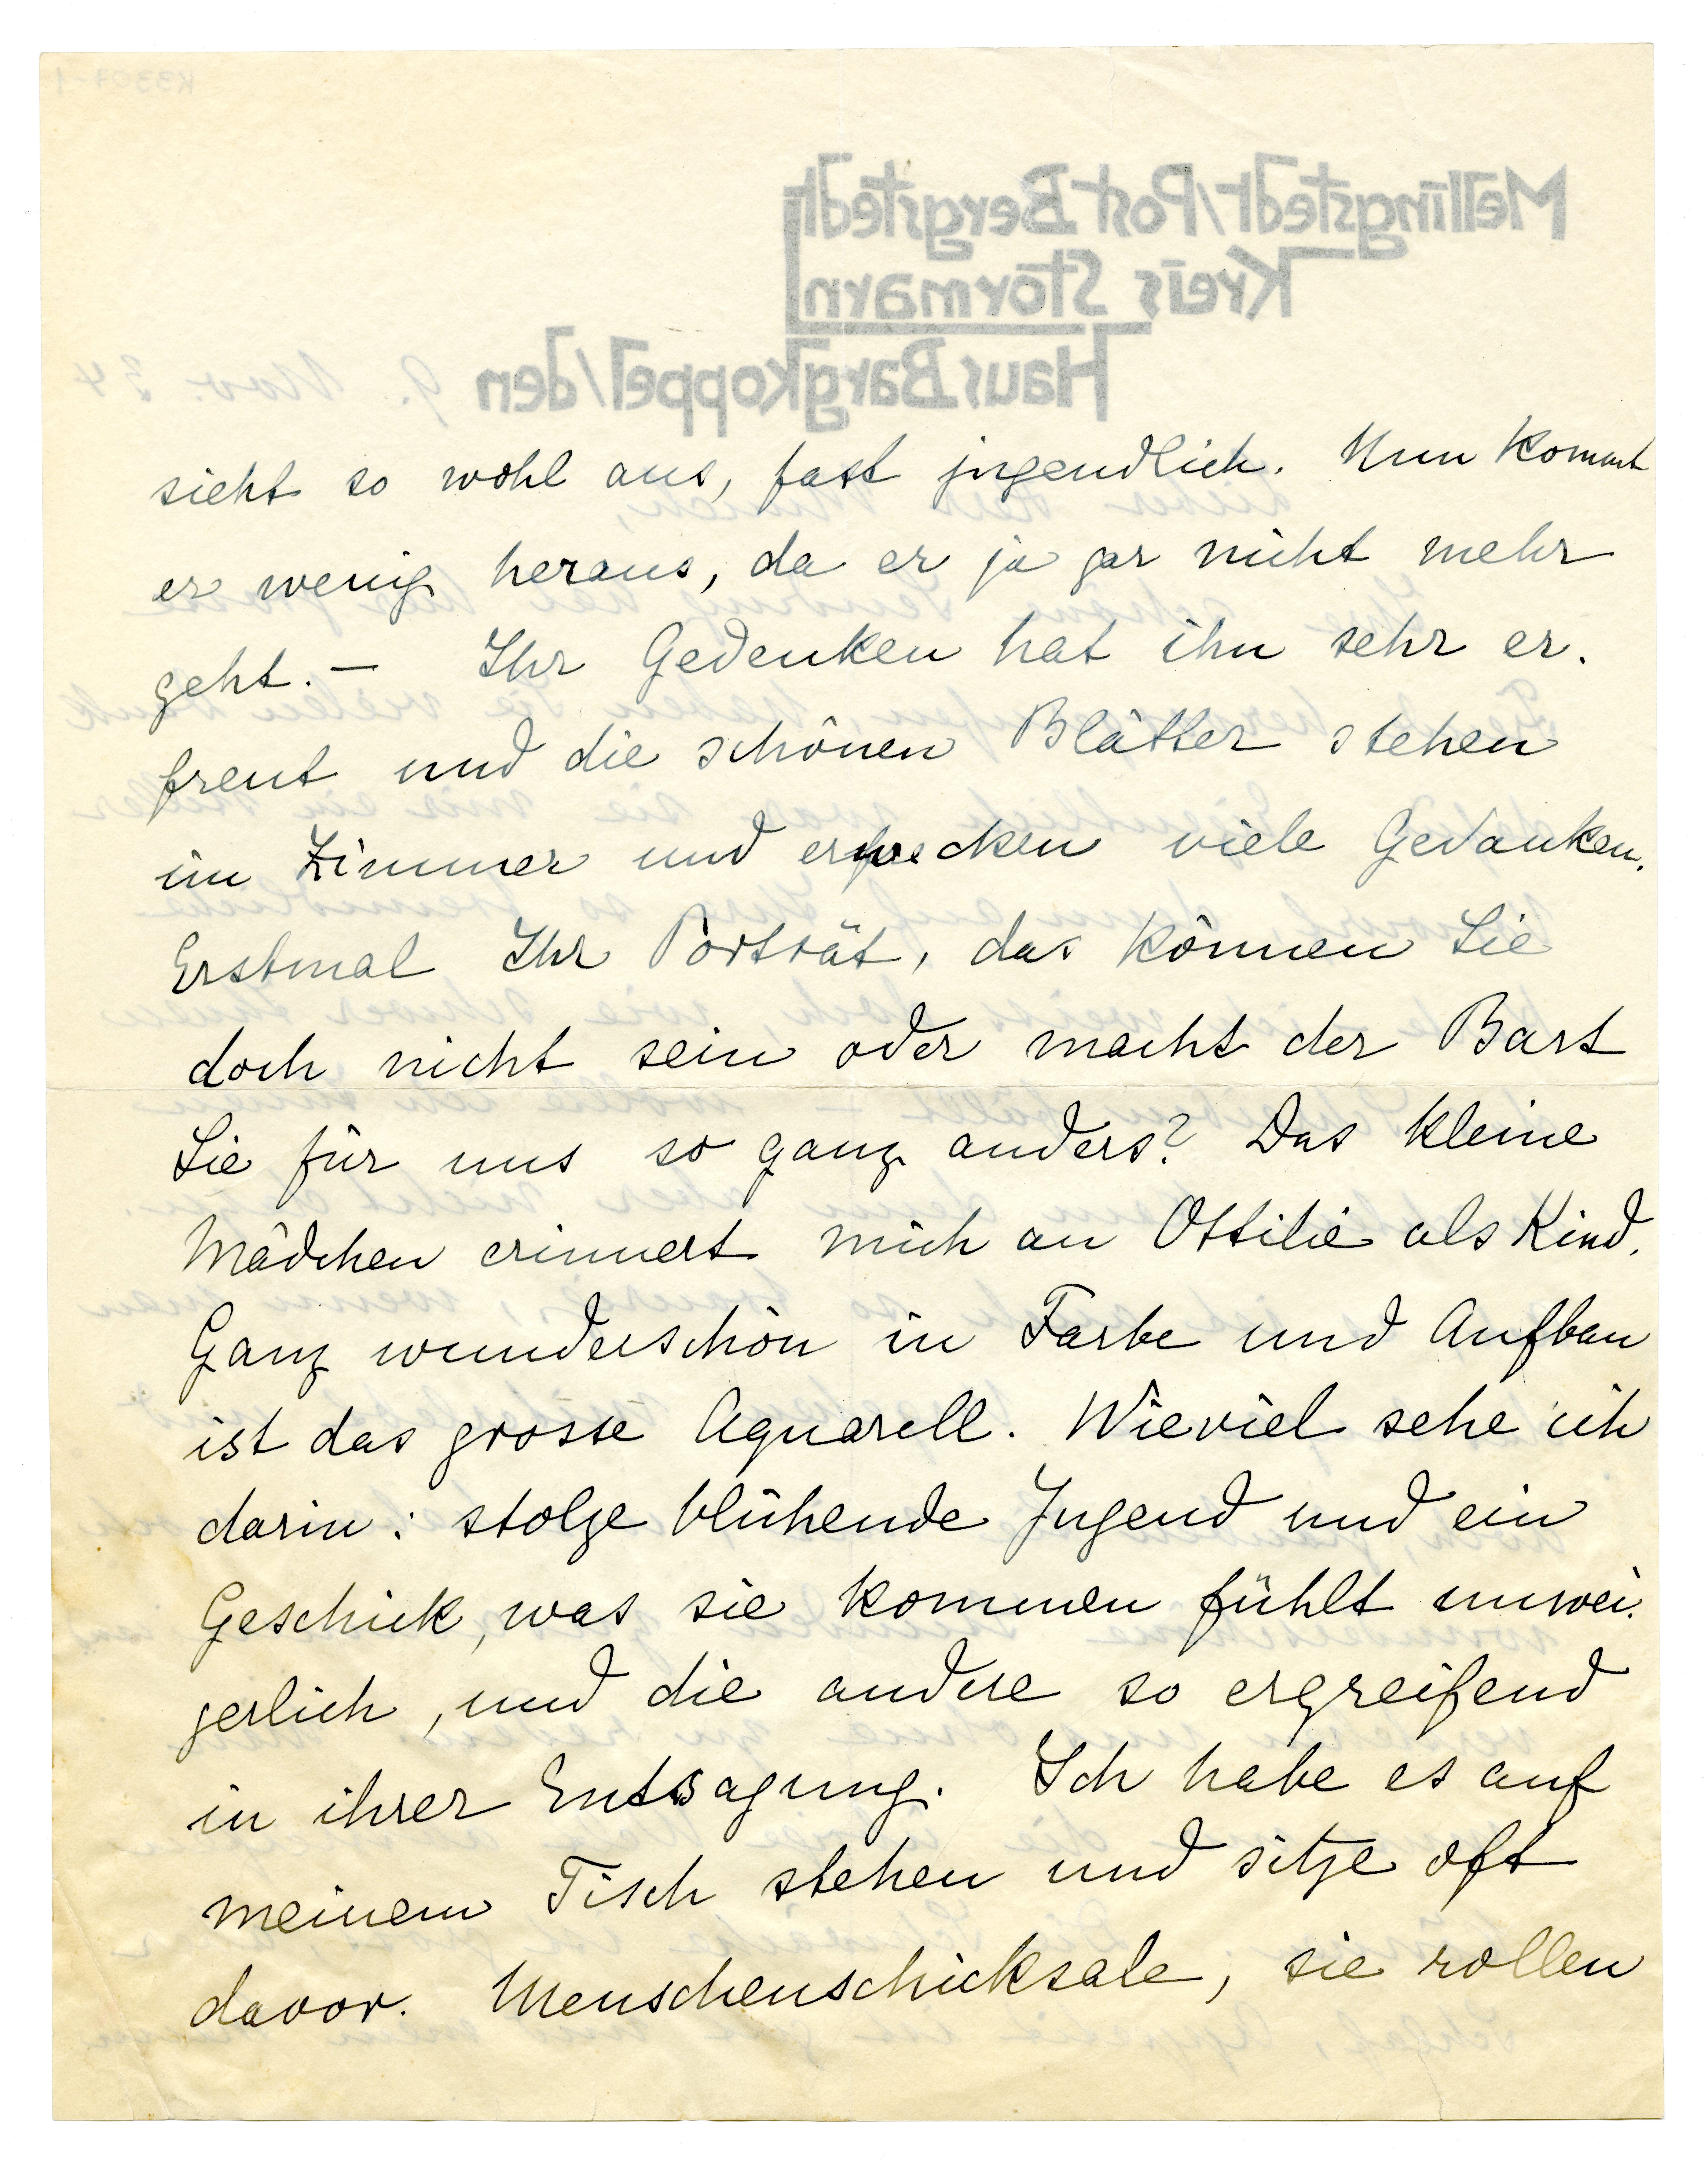 sieht so wohl aus, fast jugendlich. Nun kommt
er wenig heraus, da er ja gar nicht mehr
geht. — Ihr Gedenken hat ihn sehr er-
freut und die schönen Blätter stehen
im Zimmer und erwecken viele Gedanken.
Erstmal Ihr Porträt, das können Sie
doch nicht sein oder macht der Bart
Sie für uns so ganz anders? Das kleine
Mädchen erinnert mich an Ottilie als Kind.
Ganz wunderschön in Farbe und Aufbau
ist das grosse Aquarell. Wieviel sehe ich
darin: stolze blühende Jugend und ein
Geschick, was sie kommen fühlt unwei-
gerlich, und die andere so ergreifend
in ihrer Entsagung. Ich habe es auf
meinem Tisch stehen und sitze oft
davor. Menschenschicksale, sie rollen